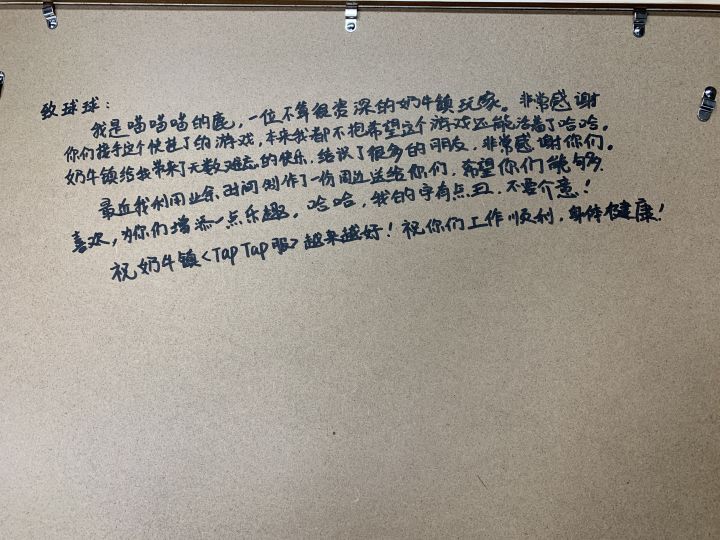 致球球：
我是喵喵喵的鹿，一位不算很资深的奶牛镇玩家。非常感谢
你们接手这个快挂了的游戏，本来我都不抱希望这个游戏还能活着了哈哈。
奶牛镇给我带来了无数难忘的快乐，结识了很多的朋友，非常感谢你们。
最近我利用业余时间创作了一份周边送给你们，希望你们能够
喜欢，为你们增添一点乐趣。哈哈，我的字有点丑，不要介意！
祝奶牛镇<TapTap服>越来越好！祝你们工作顺利，身体健康！